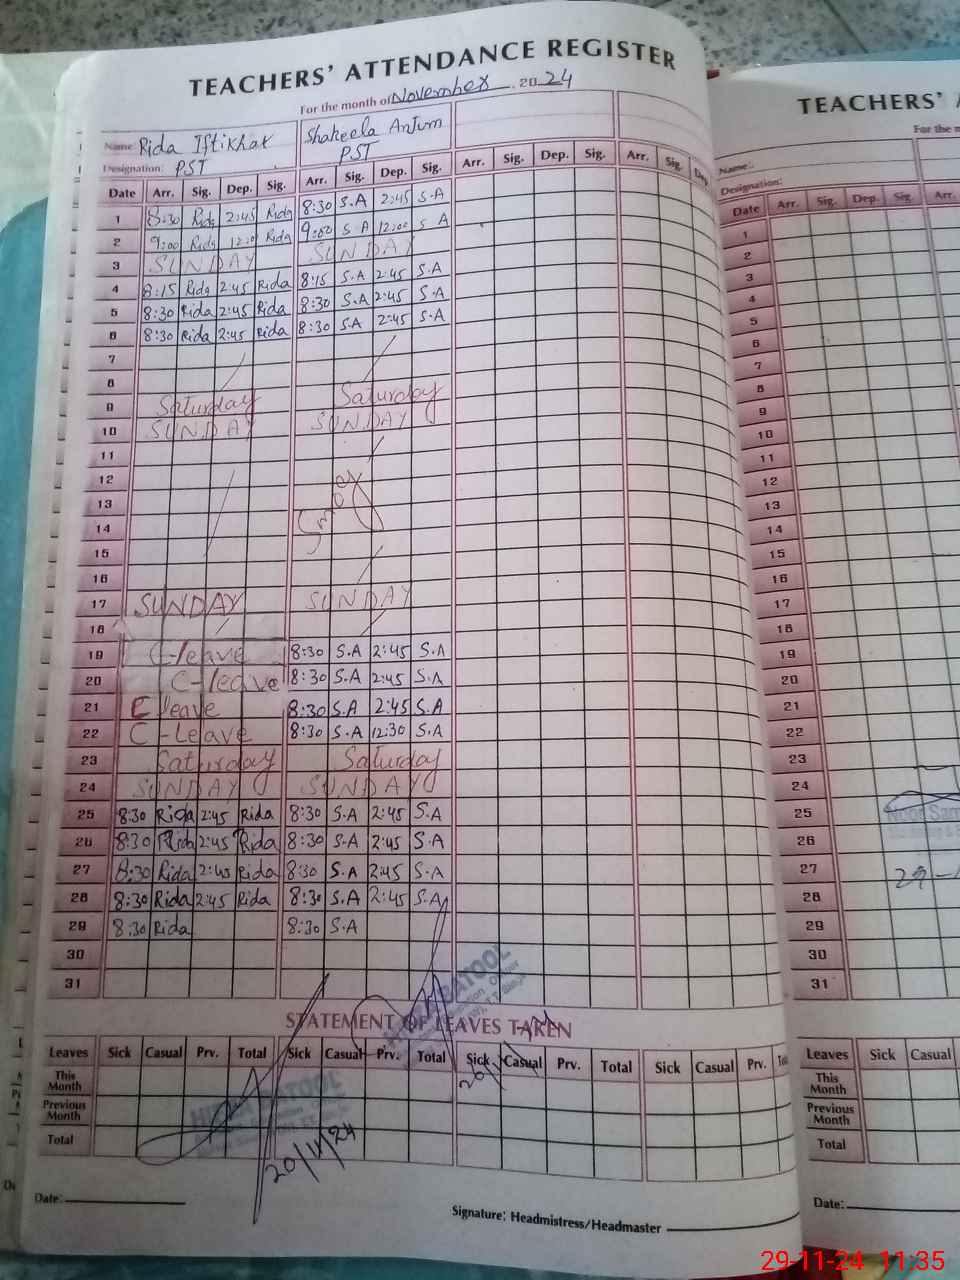 TEACHERS' ATTENDANCE REGISTER
For the month of November. 2024
Name: Rida Iftikhar Shakeela Anjum
Designation: PST PST
Date Arr. Sig. Dep. Sig. Arr. Sig. Dep. Sig. Arr. Sig. Dep. Sig. Arr. Sig. Dep
1 8:30 Rida 2:45 Rida 8:30 S.A 2:45 S.A
2 9:00 Rida 12:00 Rida 9:00 S-A 12:00 S A
3 SUNDAY SUNDAY
4 8:15 Rida 2:45 Rida 8:15 S.A 2:45 S.A
5 8:30 Rida 2:45 Rida 8:30 S.A 2:45 S.A
6 8:30 Rida 2:45 Rida 8:30 S.A 2:45 S.A
7
8
9 Saturday Saturday
10 SUNDAY SUNDAY
11
12
13
14
15
16
17 SUNDAY SUNDAY
18
19 C-leave 8:30 S.A 2:45 S.A
20 C-leave 8:30 S.A 2:45 S.A
21 C leave 8:30 S.A 2:45 S.A
22 C-Leave 8:30 S.A 12:30 S.A
23 Saturday Saturday
24 SUNDAY SUNDAY
25 8:30 Rida 2:45 Rida 8:30 S.A 2:45 S.A
26 8:30 Rida 2:45 Rida 8:30 S.A 2:45 S.A
27 8:30 Rida 2:45 Rida 8:30 S.A 2:45 S.A
28 8:30 Rida 2:45 Rida 8:30 S.A 2:45 S.A
29 8:30 Rida 8:30 S.A
30
31
BATOOL
STATEMENT OF LEAVES TAKEN
Leaves Sick Casual Prv. Total Sick Casual Prv. Total Sick Casual Prv. Total Sick Casual Prv.
This Month
Previous Month
Total
BATOOL
20/11/24
Date:
Signature: Headmistress/Headmaster
TEACHERS'
For the
Name:
Designation:
Date Arr. Sig. Dep. Sig. Arr.
1
2
3
4
5
6
7
8
9
10
11
12
13
14
15
16
17
18
19
20
21
22
23
24
25
26
27
28
29
30
31
Leaves Sick Casual
This Month
Previous Month
Total
Date:
29-11-24 11:35